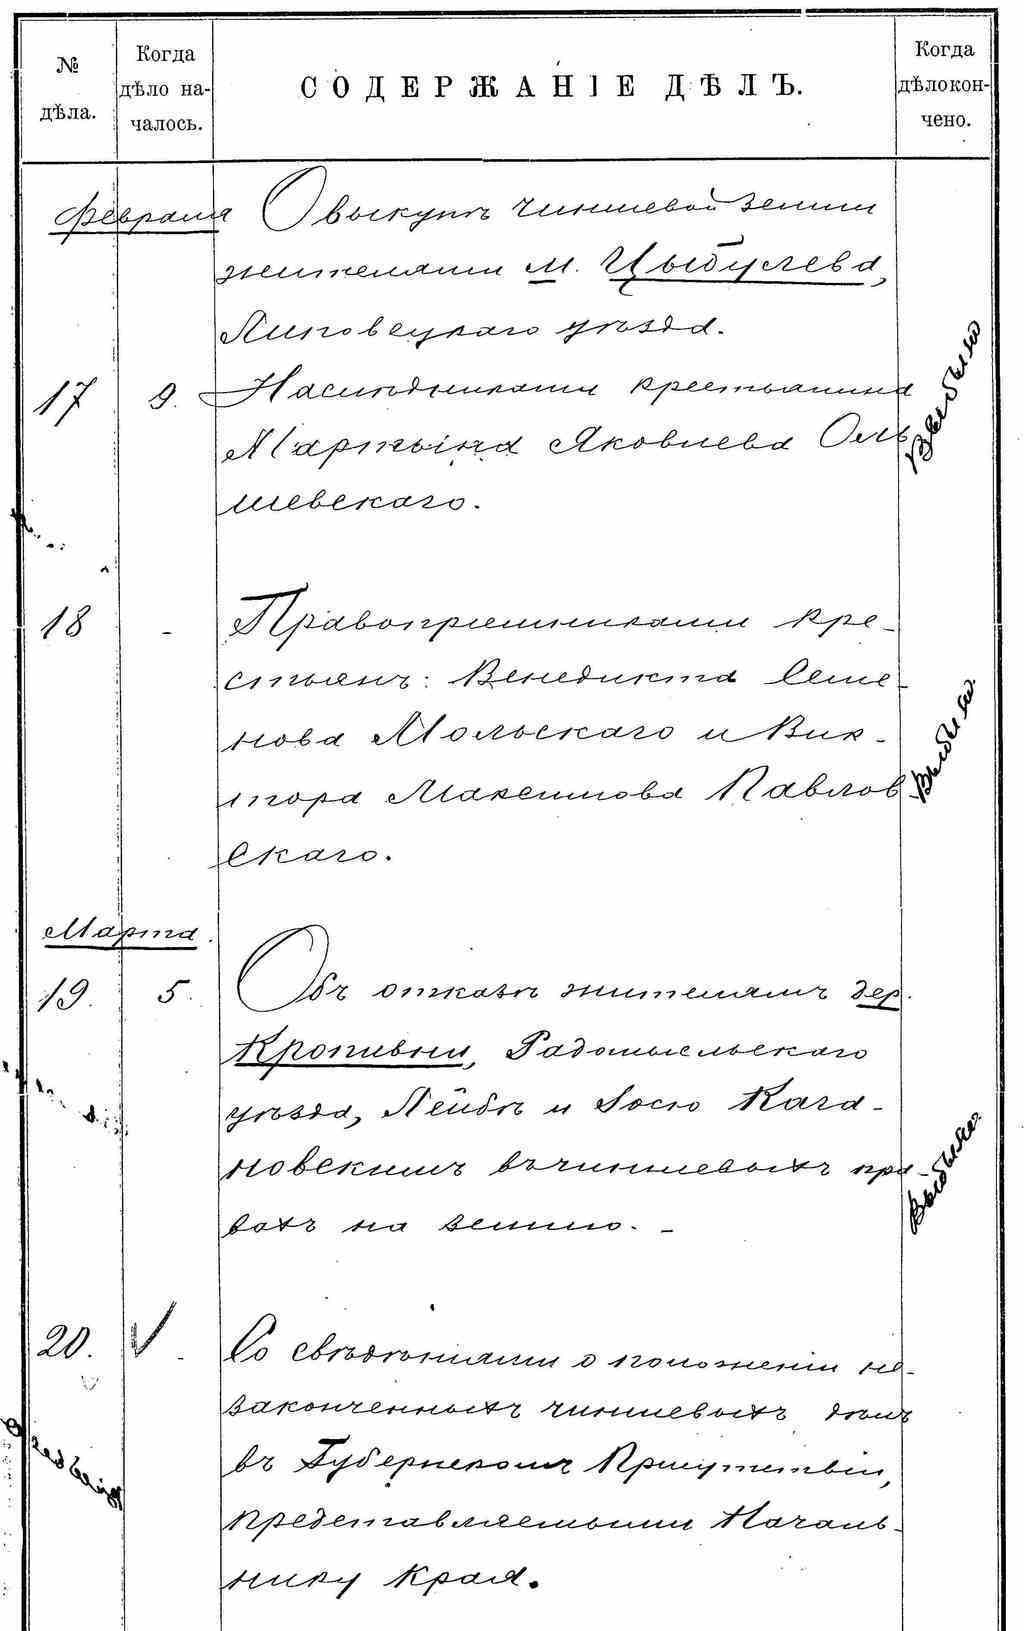 № дѣла.
Когда дѣло началось.
СОДЕРЖАНІЕ ДѢЛЪ.
Когда дѣло кончено.
Февраля
О выкупѣ чиншевой земли
жителями м. Цыбулева,
Липовецкаго уѣзда.
17 9. Наслѣдниками крестьянина
Мартына Яковлева Оль
шевскаго.
Выбыло
18 - Правопреемниками кре-
стьянъ: Венедикта Семе-
нова Мольскаго и Вик-
тора Максимова Павлов
скаго.
Выбыло
Марта.
19. 5. Объ отказѣ жителямъ дер.
Кропивни, Радомысльскаго
уѣзда, Лейбѣ и Іосю Кага-
новскимъ въ чиншевыхъ пра-
вахъ на землю. -
Выбыло
20. V Со свѣдѣніями о положеніи не-
законченныхъ чиншевыхъ дѣлъ
въ Губернскомъ Присутствіи,
представляемыми Началь-
нику Края.